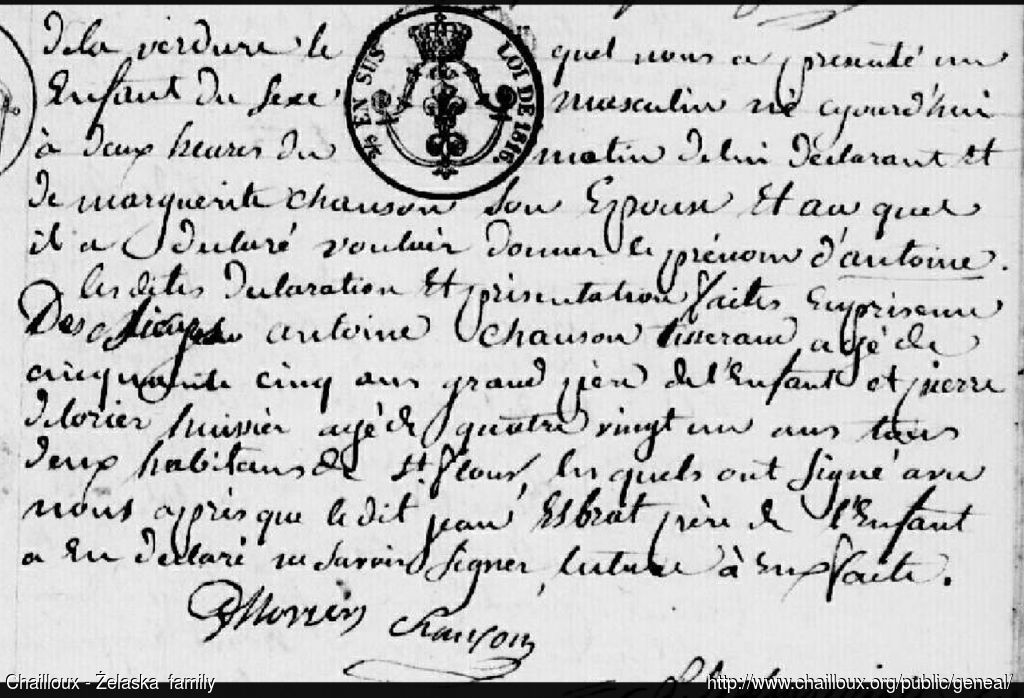 dela verdure le quel nous a presenté un
Enfant du sexe masculin né cejourd'hui
à deux heures du matin delui déclarant Et
de marguerite chanson son Epouse Et au quel
il a declaré vouloir donner le prénom d'antoine.
les dites declaration Et présentation faites En présence
Des antoine chanson tisserand agé de
cinquante cinq ans grand père de l'Enfant et pierre
delorier huissier agé de quatre vingt un ans tous
deux habitans de St. flour, les quels ont signé avec
nous après que le dit jean Esbrat père de l'Enfant
a En declaré ne savoir signer, lecture à Eux faite.
Chanson
EN SUS LOI DE 1816
Chailloux - Żelaska family
http://www.chailloux.org/public/geneal/